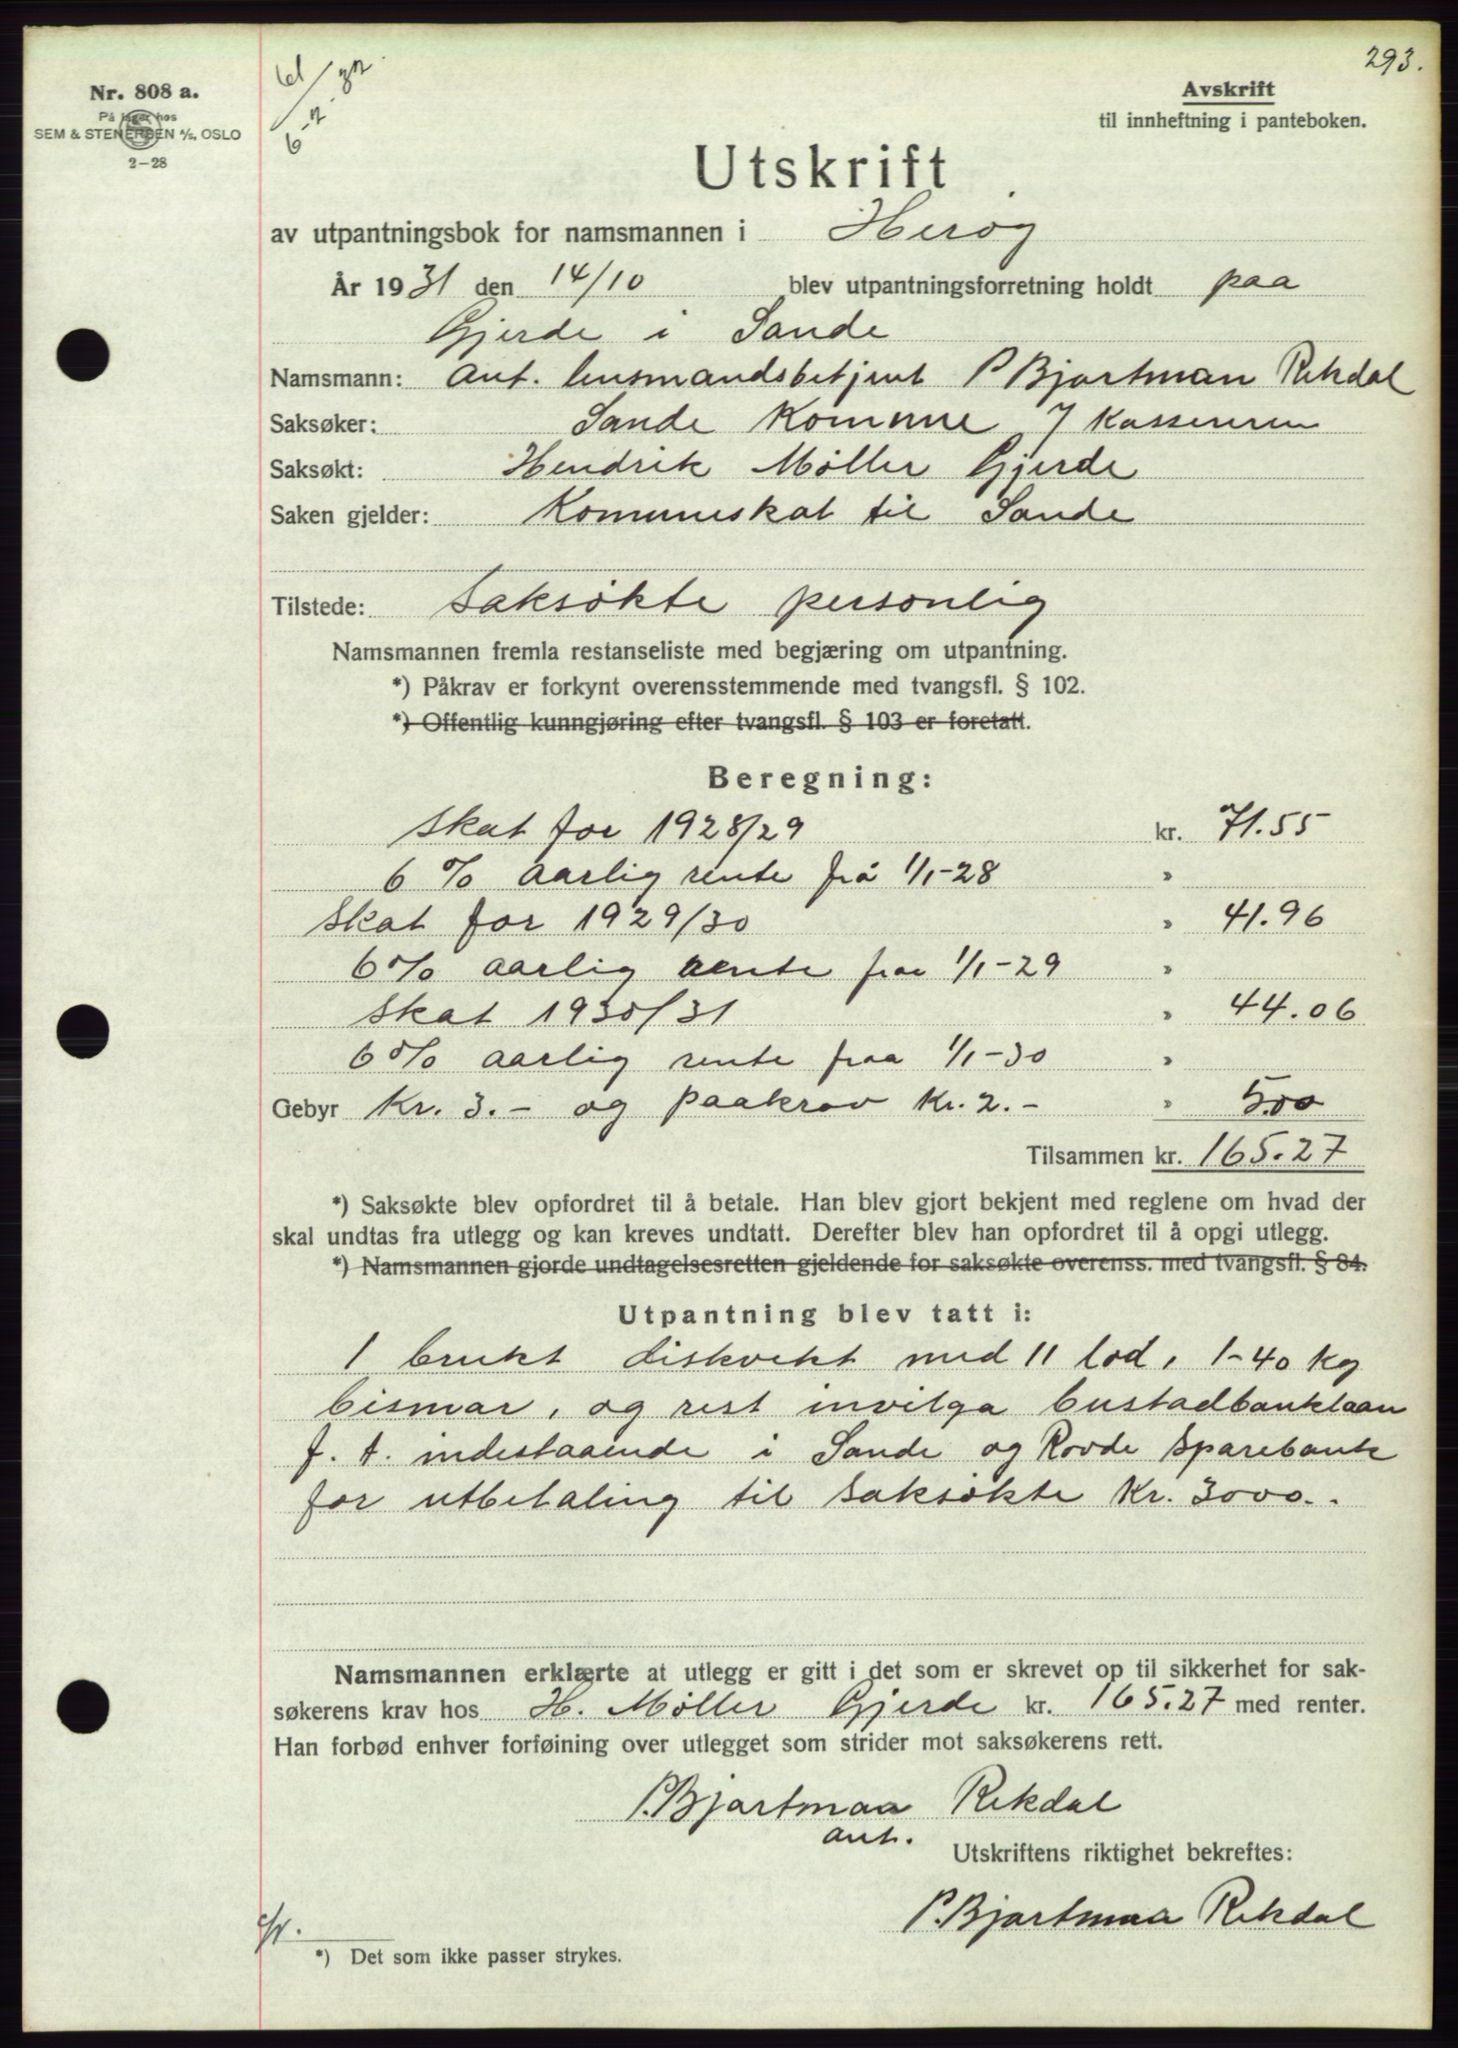 293.
61/32
6-2
Nr. 808 a.
På lager hos
SEM & STENERSEN A/S, OSLO
2–28
Avskrift
til innheftning i panteboken.
Utskrift
av utpantningsbok for namsmannen i Herøy
År 1931 den 14/10 blev utpantningsforretning holdt paa
Gjerde i Sande
Namsmann: Ant. lensmandsbetjent P Bjartman Rekdal
Saksøker: Sande Komune / Kassereren
Saksøkt: Hendrik Møller Gjerde
Saken gjelder: Komuneskat til Sande
Tilstede: Saksøkte personlig
Namsmannen fremla restanseliste med begjæring om utpantning.
*) Påkrav er forkynt overensstemmende med tvangsfl. § 102.
*) Offentlig kunngjøring efter tvangsfl. § 103 er foretatt.
Beregning:
Skat for 1928/29 kr. 71.55
6 % aarlig rente frå 1/1-28 "
Skat for 1929/30 " 41.96
6% aarlig rente fraa 1/1-29 "
Skat 1930/31 " 44.06
6% aarlig rente fraa 1/1-30 "
Gebyr Kr. 3.- og paakrav Kr. 2.- " 5.00
Tilsammen kr. 165.27
*) Saksøkte blev opfordret til å betale. Han blev gjort bekjent med reglene om hvad der
skal undtas fra utlegg og kan kreves undtatt. Derefter blev han opfordret til å opgi utlegg.
*) Namsmannen gjorde undtagelsesretten gjeldende for saksøkte overenss. med tvangsfl. § 84.
Utpantning blev tatt i:
1 brukt diskvekt med 11 lod, 1-40 kg
bismar, og rest invilga bustadbanklaan
f. t. indestaaende i Sande og Rovde Sparebank
for utbetaling til saksøkte Kr. 3000..
Namsmannen erklærte at utlegg er gitt i det som er skrevet op til sikkerhet for sak-
søkerens krav hos H. Møller Gjerde kr. 165.27 med renter.
Han forbød enhver forføining over utlegget som strider mot saksøkerens rett.
P. Bjartmaa Rekdal
ant.
Utskriftens riktighet bekreftes:
P. Bjartmaa Rekdal
*) Det som ikke passer strykes.